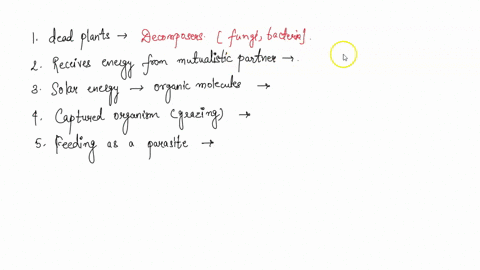 1. dead plants → Decomposers [fungi, bacteria].
2. Receives energy from mutualistic partner →.
3. Solar energy → organic molecules →
4. Captured organism (grazing) →
5. Feeding as a parasite →